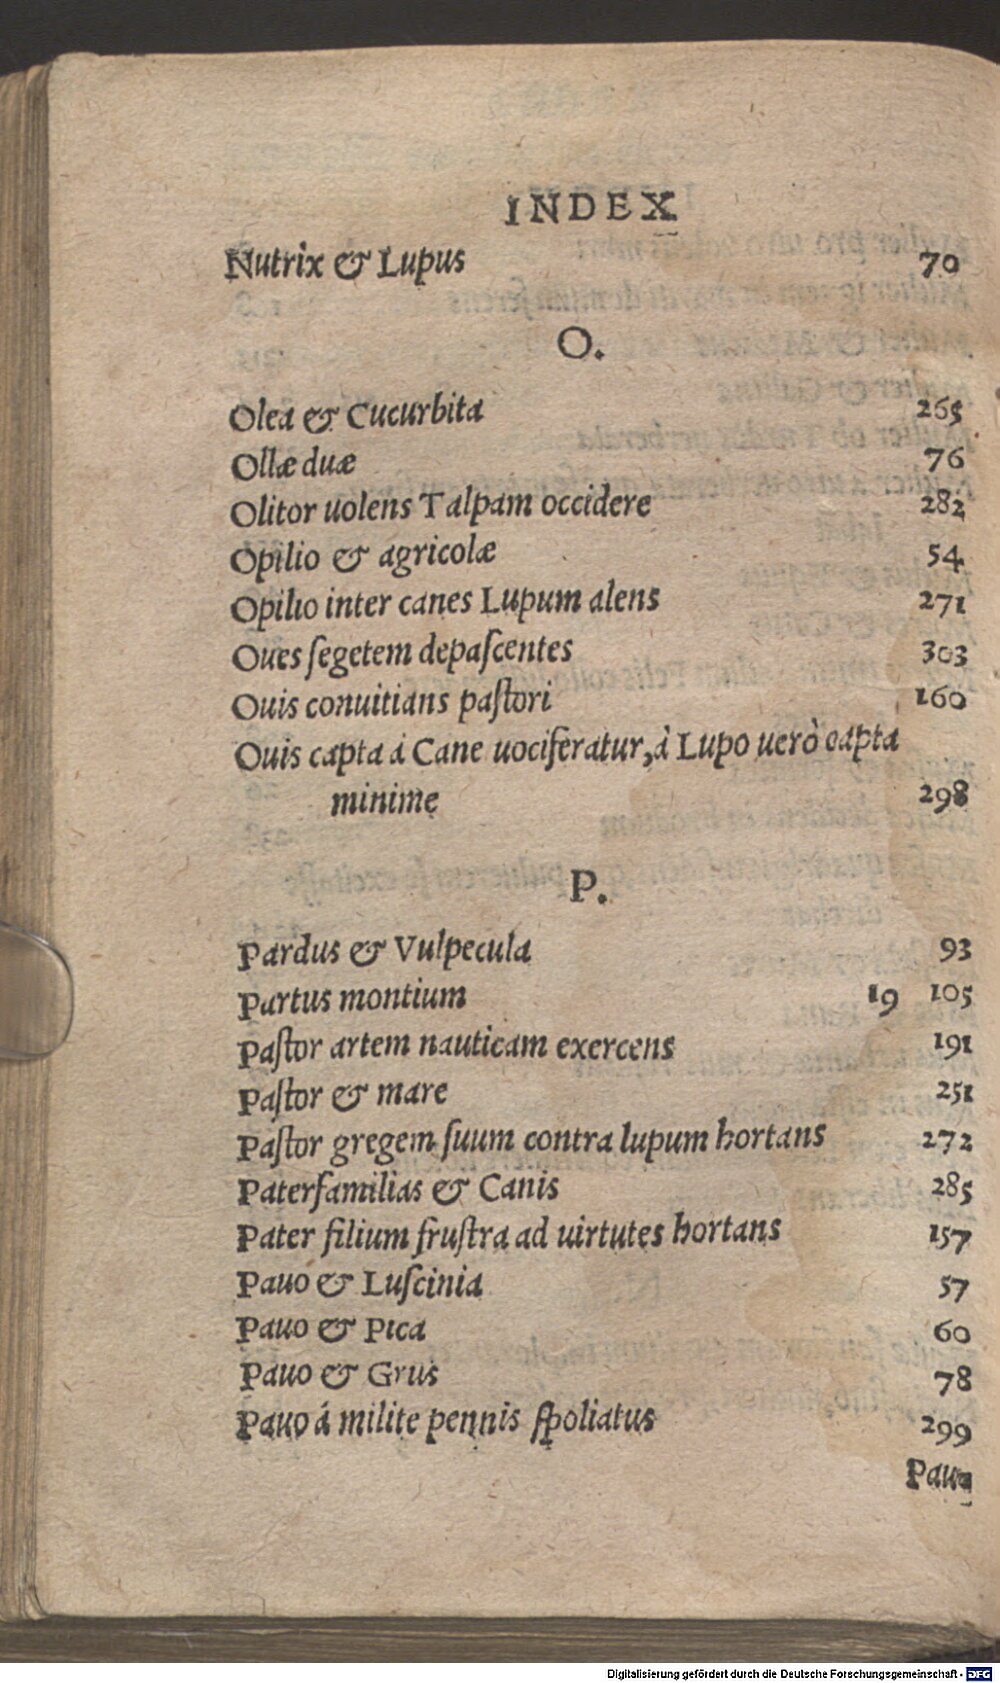 INDEX
Nutrix & Lupus 70
O.
Olea & Cucurbita 265
Ollæ duæ 76
Olitor uolens Talpam occidere 282
Opilio & agricolæ 54
Opilio inter canes Lupum alens 271
Oues ſegetem depaſcentes 303
Ouis conuitians paſtori 160
Ouis capta á Cane uociferatur, à Lupo uerò capta
minime 298
P.
Pardus & Vulpecula 93
Partus montium 19 105
Paſtor artem nauticam exercens 191
Paſtor & mare 251
Paſtor gregem ſuum contra lupum hortans 272
Paterfamilias & Canis 285
Pater filium fruſtra ad uirtutes hortans 157
Pauo & Luſcinia 57
Pauo & Pica 60
Pauo & Grus 78
Pauo á milite pennis ſpoliatus 299
Pauo
Digitalisierung gefördert durch die Deutsche Forschungsgemeinschaft - DFG